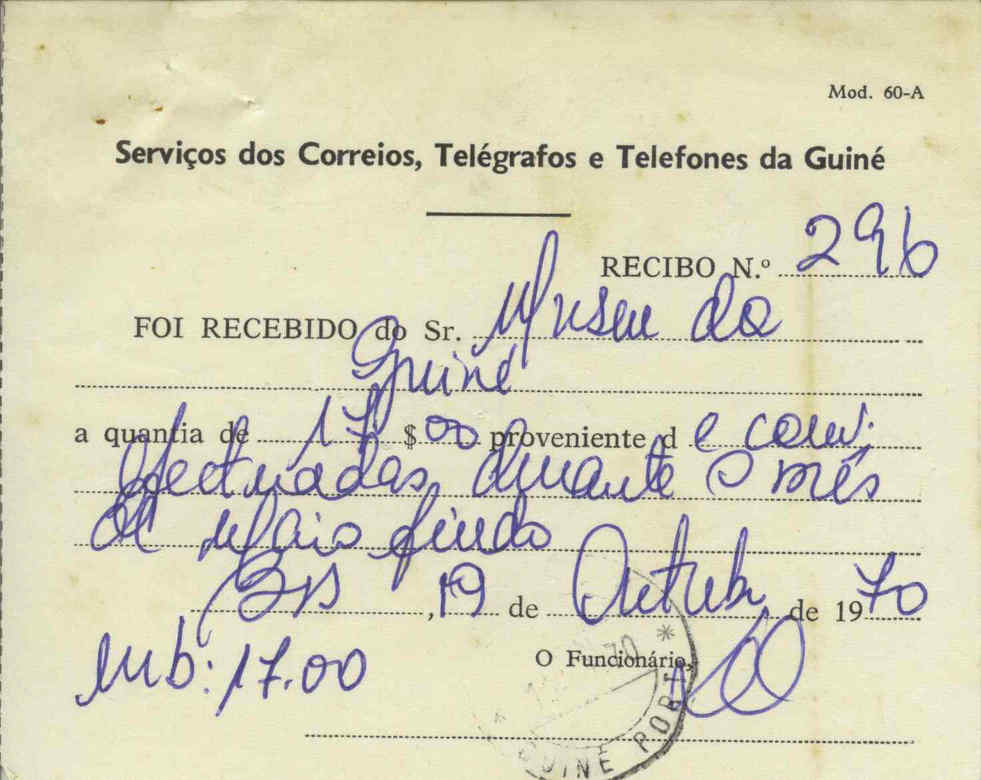 Mod. 60-A
Serviços dos Correios, Telégrafos e Telefones da Guiné
RECIBO N.º 296
FOI RECEBIDO do Sr. Museu da
Guiné
a quantia de 17 $ 00 proveniente d e conv.
efectuadas durante o mês
de Maio findo
Bis, 19 de Outubr, de 1970
O Funcionário,
Imp: 17.00
GUINÉ PORT